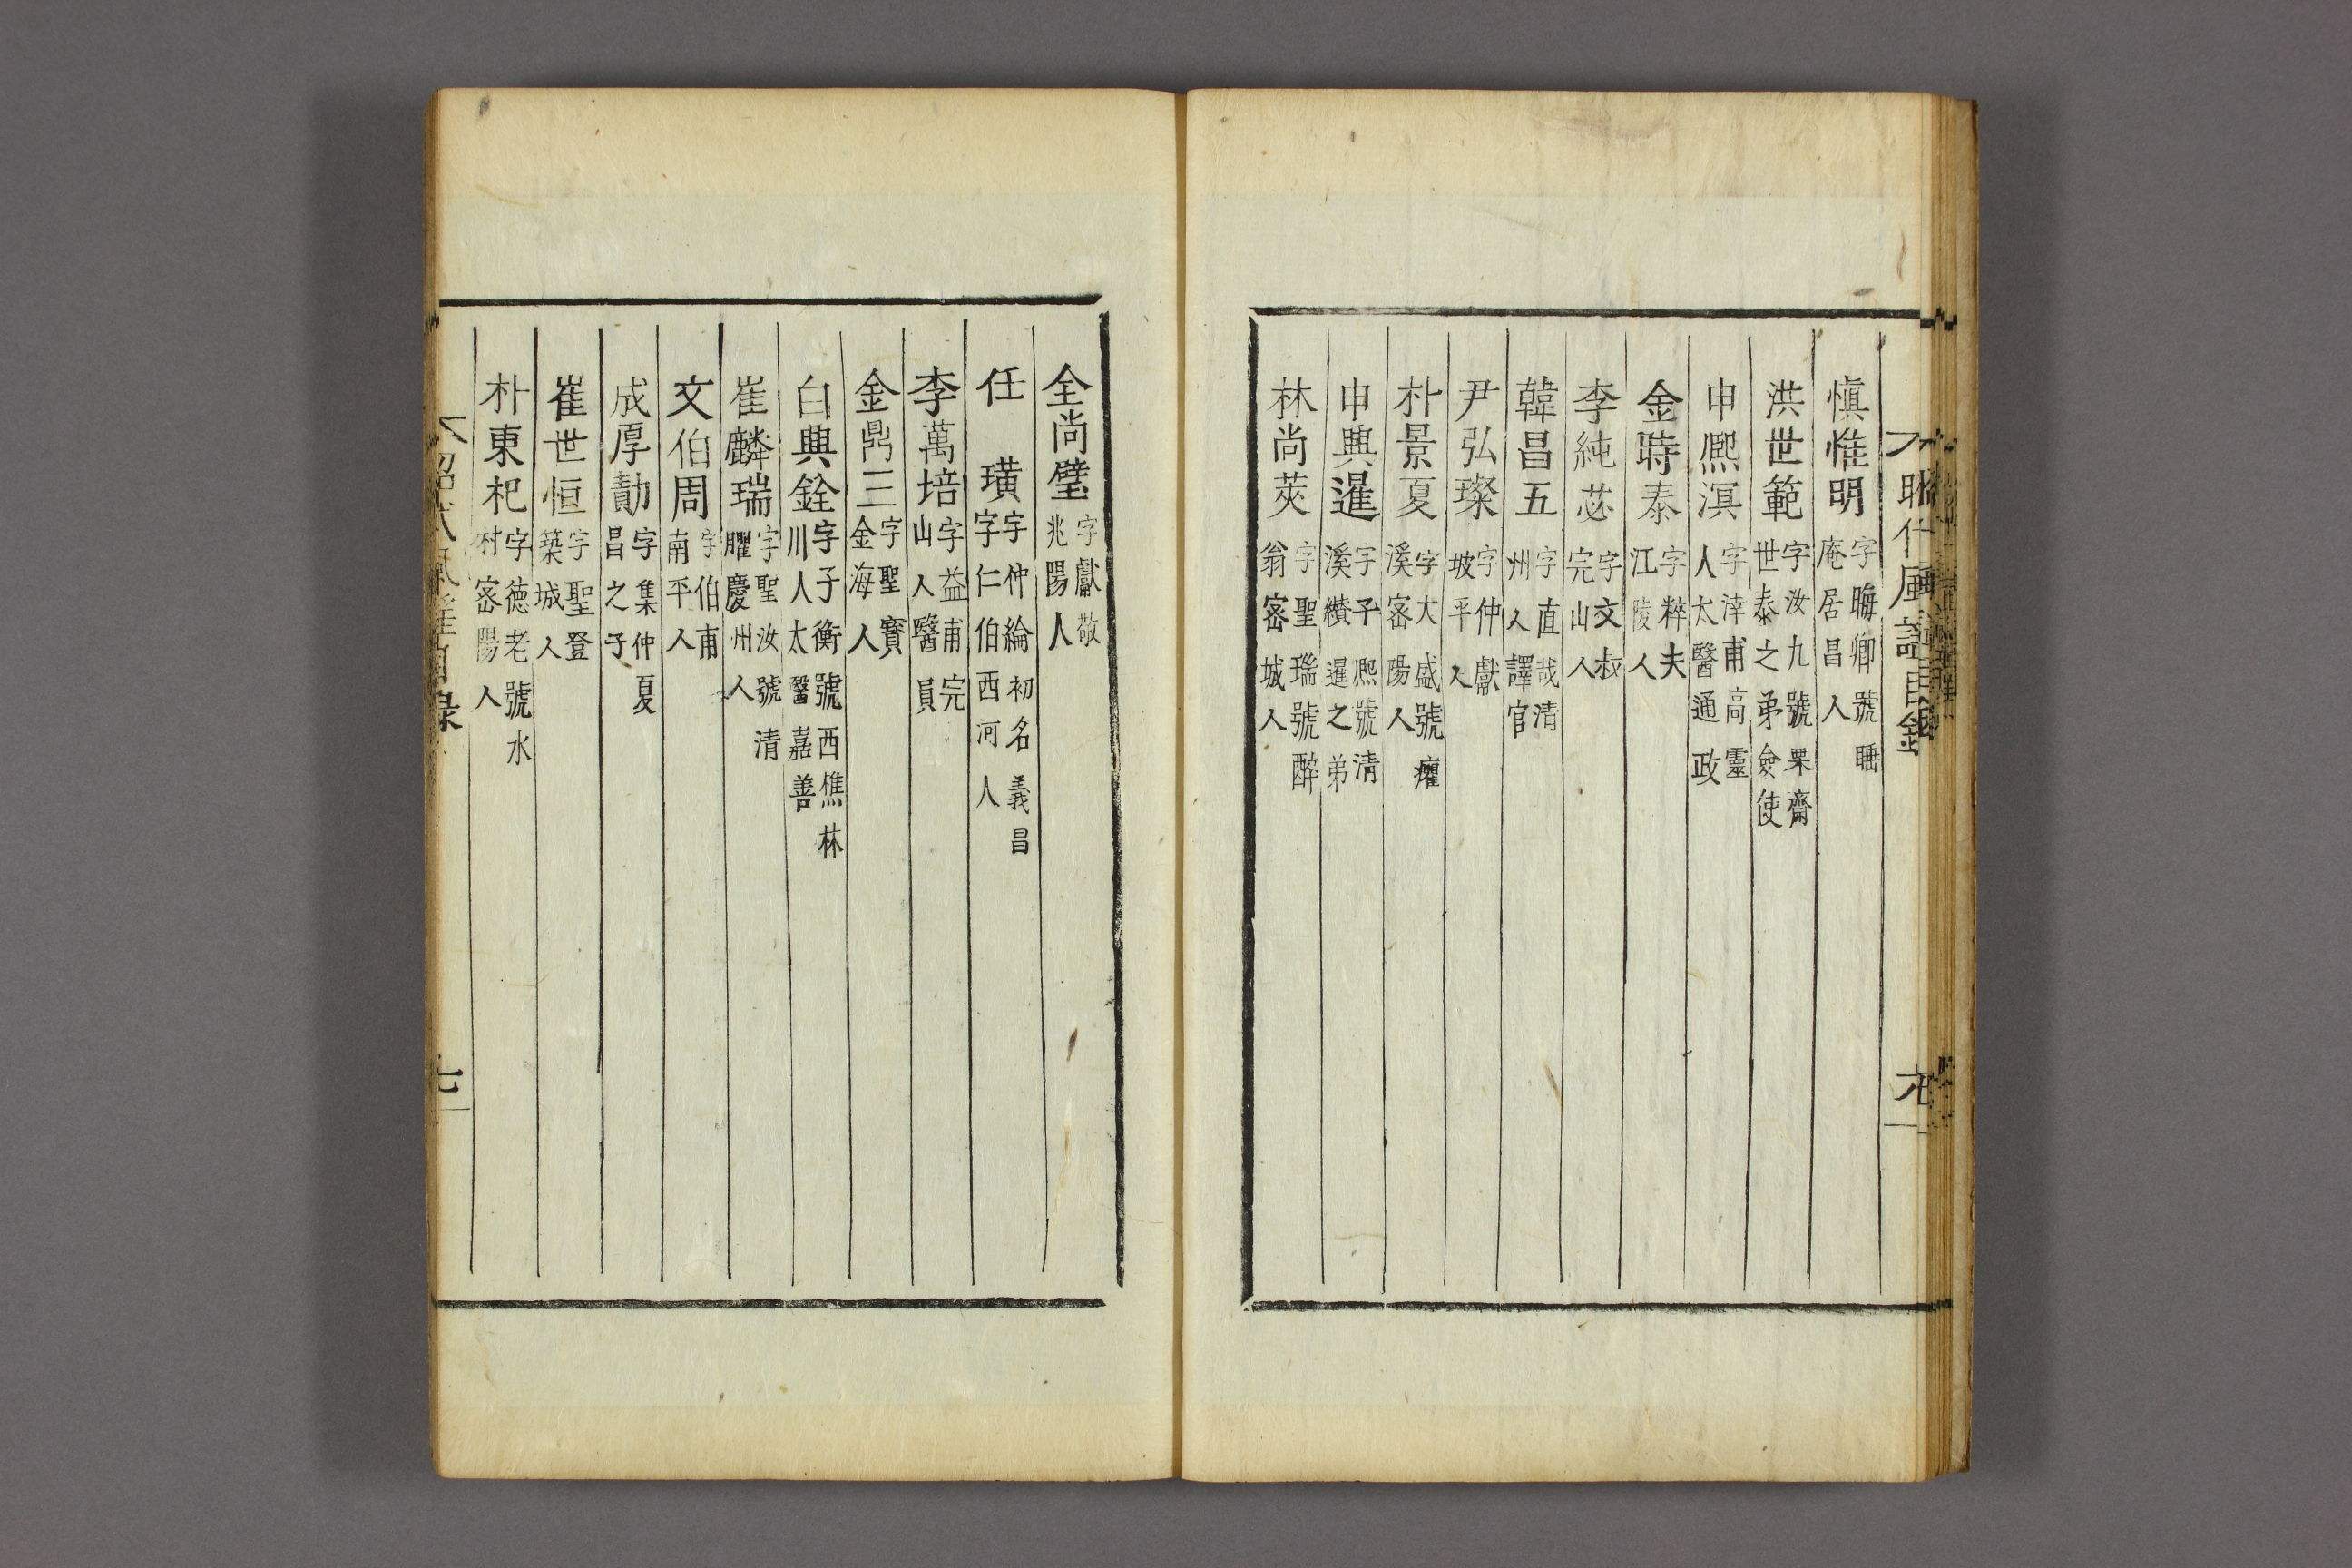 愼惟明 字晦卿號睡庵居昌人
洪世範 字汝九號栗齋世泰之弟僉使
申熈溟 字涬甫高靈人太醫通政
金時泰 字粹夫江陵人
李純苾 字文叔完山人
韓昌五 字直哉清州人譯官
尹弘璨 字仲獻坡平人
朴景夏 字大盛號癯溪宻陽人
申興暹 字子熈號清溪纉暹之弟
林尚莢 字聖瑞號醉翁宻城人
全尚璧 字獻敬兆陽人
任璜 字仲綸初名義昌字仁伯西河人
李萬培 字益甫完山人醫員
金鼎三 字聖寶金海人
白興銓 字子衡號西樵林川人太醫嘉善
崔麟瑞 字聖汝號清臞慶州人
文伯周 字伯甫南平人
成厚勣 字集仲夏昌之子
崔世恒 字聖登築城人
朴東杞 字徳老號水村宻陽人
七